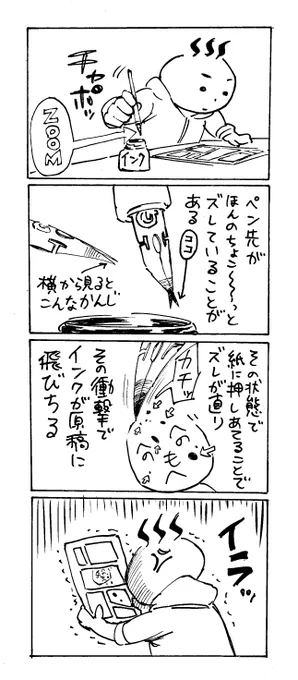 チャポッ
ZOOM
インク
ペン先が
ほんのちょこ〜〜〜っと
ズレていることが
ある
ココ
横から見ると
こんなかんじ
その状態で
紙に押しあてることで
ズレが直り
カチッ
へのへ
もへ
その衝撃で
インクが原稿に
飛びちる
イラッ